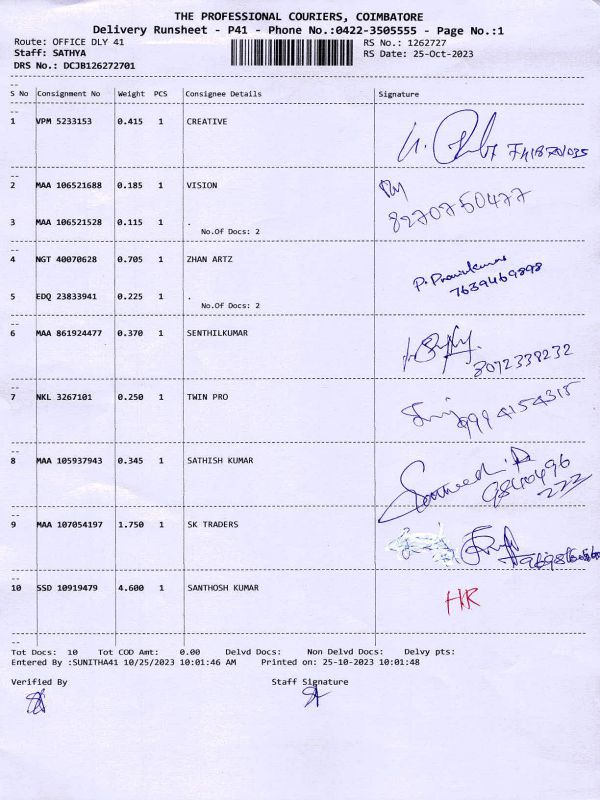 THE PROFESSIONAL COURIERS, COIMBATORE
Delivery Runsheet - P41 - Phone No.:0422-3505555 - Page No.:1
Route: OFFICE DLY 41 RS No.: 1262727
Staff: SATHYA RS Date: 25-Oct-2023
DRS No.: DCJB126272701
S No Consignment No Weight PCS Consignee Details Signature
1 VPM 5233153 0.415 1 CREATIVE
2 MAA 106521688 0.185 1 VISION
8270750477
3 MAA 106521528 0.115 1 .
No.Of Docs: 2
4 NGT 40070628 0.705 1 ZHAN ARTZ P. Pravinkumar
7639469898
5 EDQ 23833941 0.225 1 .
No.Of Docs: 2
6 MAA 861924477 0.370 1 SENTHILKUMAR
8072338232
7 NKL 3267101 0.250 1 TWIN PRO
9994154315
8 MAA 105937943 0.345 1 SATHISH KUMAR
9840496
222
9 MAA 107054197 1.750 1 SK TRADERS
10 SSD 10919479 4.600 1 SANTHOSH KUMAR HR
Tot Docs: 10 Tot COD Amt: 0.00 Delvd Docs: Non Delvd Docs: Delvy pts:
Entered By :SUNITHA41 10/25/2023 10:01:46 AM Printed on: 25-10-2023 10:01:48
Verified By Staff Signature